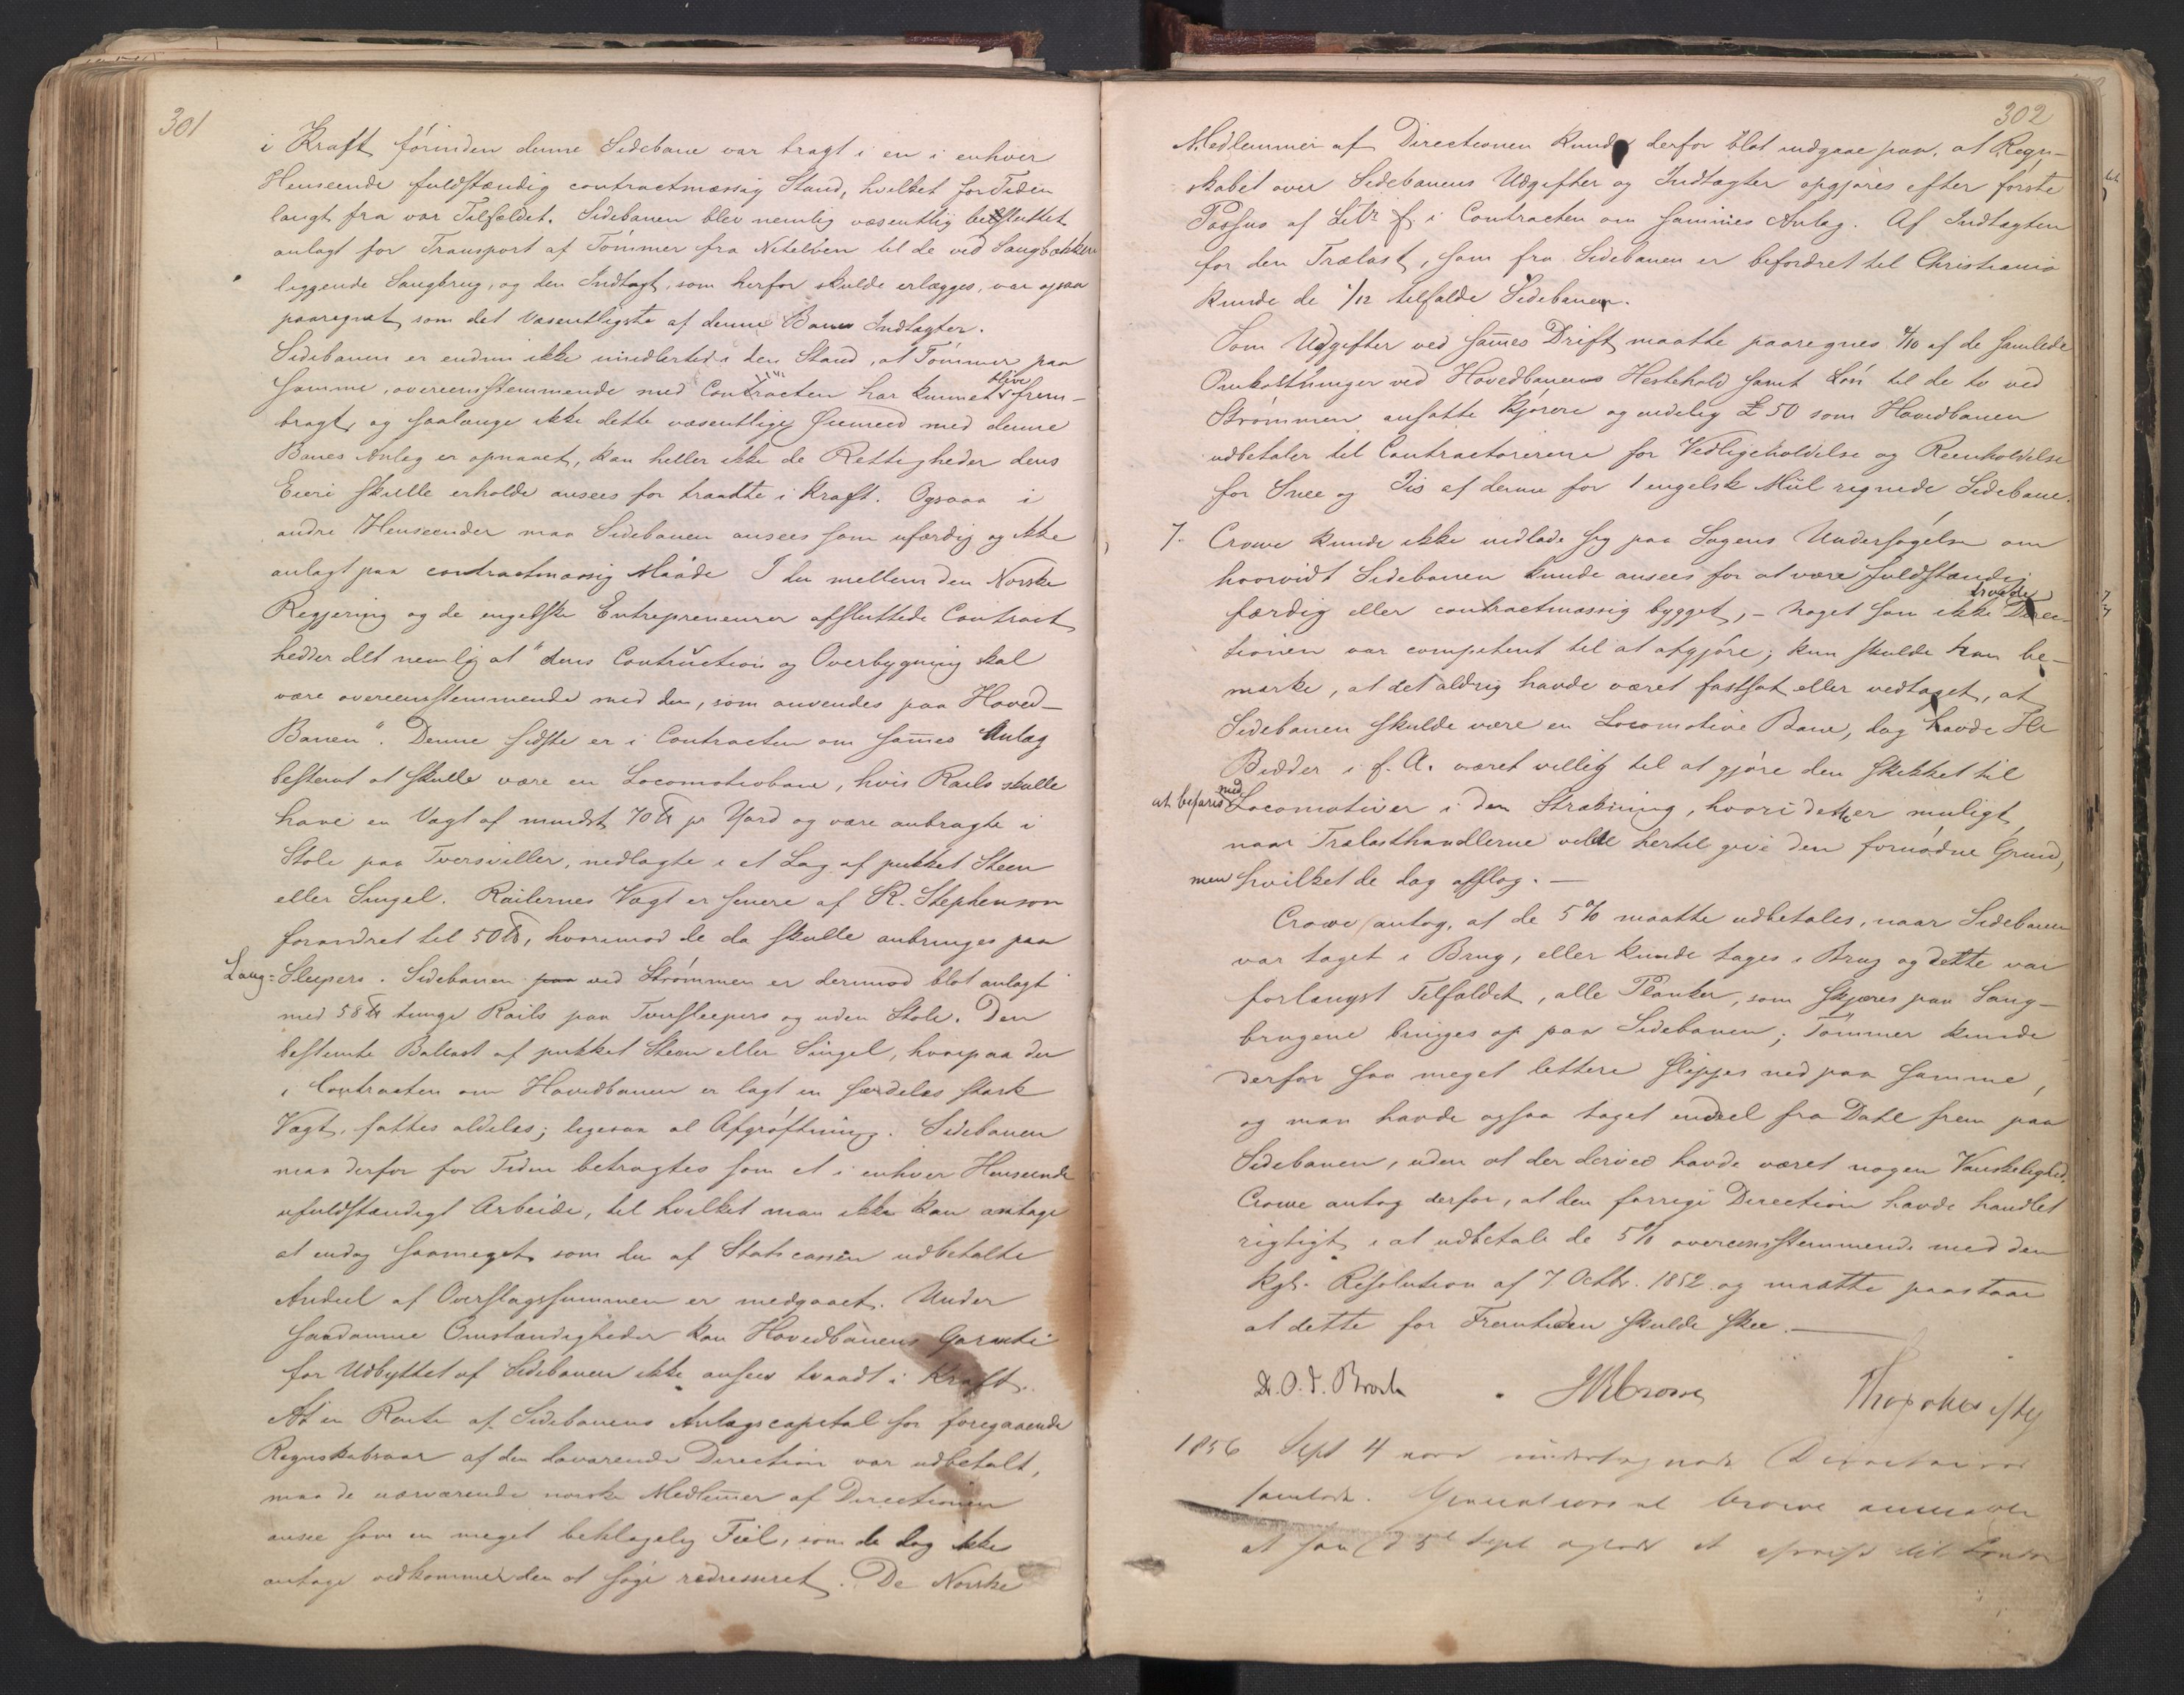 301
i Kraft, förinden denne Sidebane var bragt i en i enhver
Henseende fuldstændig contractmæssig Stand, hvilket for Tiden
langt fra var Tilfældet. Sidebanen blev nemlig væsentlig besluttet
anlagt for Transport af Tømmer fra Nitelven til de ved Saugbækken
liggende Saugbrug, og den Indtægt, som herfor skulde erlægges, var ogsaa
paaregnet som det væsentligste af denne Banes Indtægter.
Sidebanen er endnu ikke imidlertid i den Stand, at Tømmer paa
samme, overeensstemmende med Contracten har kunnet blive frem-
bragt, og saalænge ikke dette væsentlige Öiemeed med denne
Banes Anlæg er opnaaet, kan heller ikke de Rettigheder dens
Eiere skulle erholde ansees for traadte i Kraft. Ogsaaa i
andre Henseender maa Sidebanen ansees som ufærdig og ikke
anlagt paa contractmæssig Maade I den mellem den Norske
Regjering og de engelske Entrepreneurer afsluttede Contract
hedder det nemlig at "dens Contruction og Overbygning skal
være overeensstemmende med den, som anvendes paa Hoved-
Banen". Denne sidste er i Contracten om sam̄es Anlæg
bestemt at skulle være en Locomotivbane, hvis Rails skulle
have en Vægt af mindst 70 ℔ pr Yard og være anbragte i
Stole paa Tversviller, nedlagte i et Lag af pukket Steen
eller Singel. Railernes Vægt er senere af R. Stephenson
forandret til 50 ℔, hvorimod de da skulle anbringes paa
Lang= Sleepers. Sidebanen paa ved Strømmen er derimod blot anlagt
med 58 ℔ tunge Rails paa Tversleepers og uden Stole. Den
bestemte Ballast af pukket Steen eller Singel, hvorpaa der
i Contracten om Hovedbanen er lagt en særdeles stærk
Vægt, fattes aldeles; ligesaa al Afgrøftning. Sidebanen
maa derfor for Tiden betragtes som et i enhver Henseende
ufuldstændigt Arbeide, til hvilket man ikke kan antage
at endog saameget som den af Statscassen udbetalte
Andeel af Overslagssummen er medgaaet. Under
saadanne Omstændigheder kan Hovedbanens Garanti
for Udbyttet af Sidebanen ikke ansees traadt i Kraft.
At en Rente af Sidebanens Anlægscapital for foregaaende
Regnskabsaar af den daværende Direction var udbetalt,
maa de nærværende norske Medlem̄er af Directionen
ansee som en meget beklagelig Feil, som de dog ikke
antage vedkommer dem at søge redresseret. De Norske
302
Medlemmer af Directionen kunde derfor blot indgaae paa, at Regn-
skabet over Sidebanens Udgifter og Indtægter opgjøres efter første
Passus af Litr f. i Contracten om sammes Anlæg. Af Indtægten
for den Trælast, som fra Sidebanen er befordret til Christiania
kunde de 1/12 tilfalde Sidebanen.
Som Udgifter ved sam̄es Drift maatte paaregnes /10 af de samlede
Omkostninger ved Hovedbanens Hestehold samt Løn til de to ved
Strømmen ansatte Kjørere og endelig £ 50 som Hovedbanen
udbetaler til Contractorerene for Vedligeholdelse og Reenholdelse
for Snee og Iis af denne for 1 engelsk Miil regnede Sidebane.
7. Crowe kunde ikke indlade sig paa Sagens Undersøgelse om
hvorvidt Sidebanen kunde ansees for at være fuldstændig
færdig eller contractmæssig bygget, - noget som ikke Direc-
tionen var competent til at afgjøre; kun skulde han be-
mærke, at det aldrig havde været fastsat eller vedtaget, at
Sidebanen skulde være en Locomotive Bane, dog havde Hr
Bidder i f. A. været villig til at gjøre den skikket til
at befares med Locomotiver i den Strækning, hvori det er muligt,
naar Trælasthandlerne vilde hertil give den fornødne Grund,
men hvilket de dog afslog. -
Crowe antog, at de 5 % maatte udbetales, naar Sidebanen
var taget i Brug, eller kunde tages i Brug og dette var
forlængst Tilfældet, alle Planker, som skjæres paa Saug-
brugene bringes op paa Sidebanen; Tømmer kunde
derfor saa meget lettere slippes ned paa samme,
og man havde ogsaa taget endeel fra Dahl frem paa
Sidebanen, uden at der derved havde været nogen Vanskelighed.
Crowe antog derfor, at den forrige Direction havde handlet
rigtigt i at udbetale de 5 % overeensstemmende med den
Kgl. Resolution af 7. Octbr. 1852 og maatte paastaae
at dette for Fremtiden skulde skee. -
Dr. O. J. Broch JRCrowe
1856 Sept 4 vare undertegnede Directeurer
samlede. Generalconsul Crowe anmeldte
at han d 5 Sept agtede at afreise til London